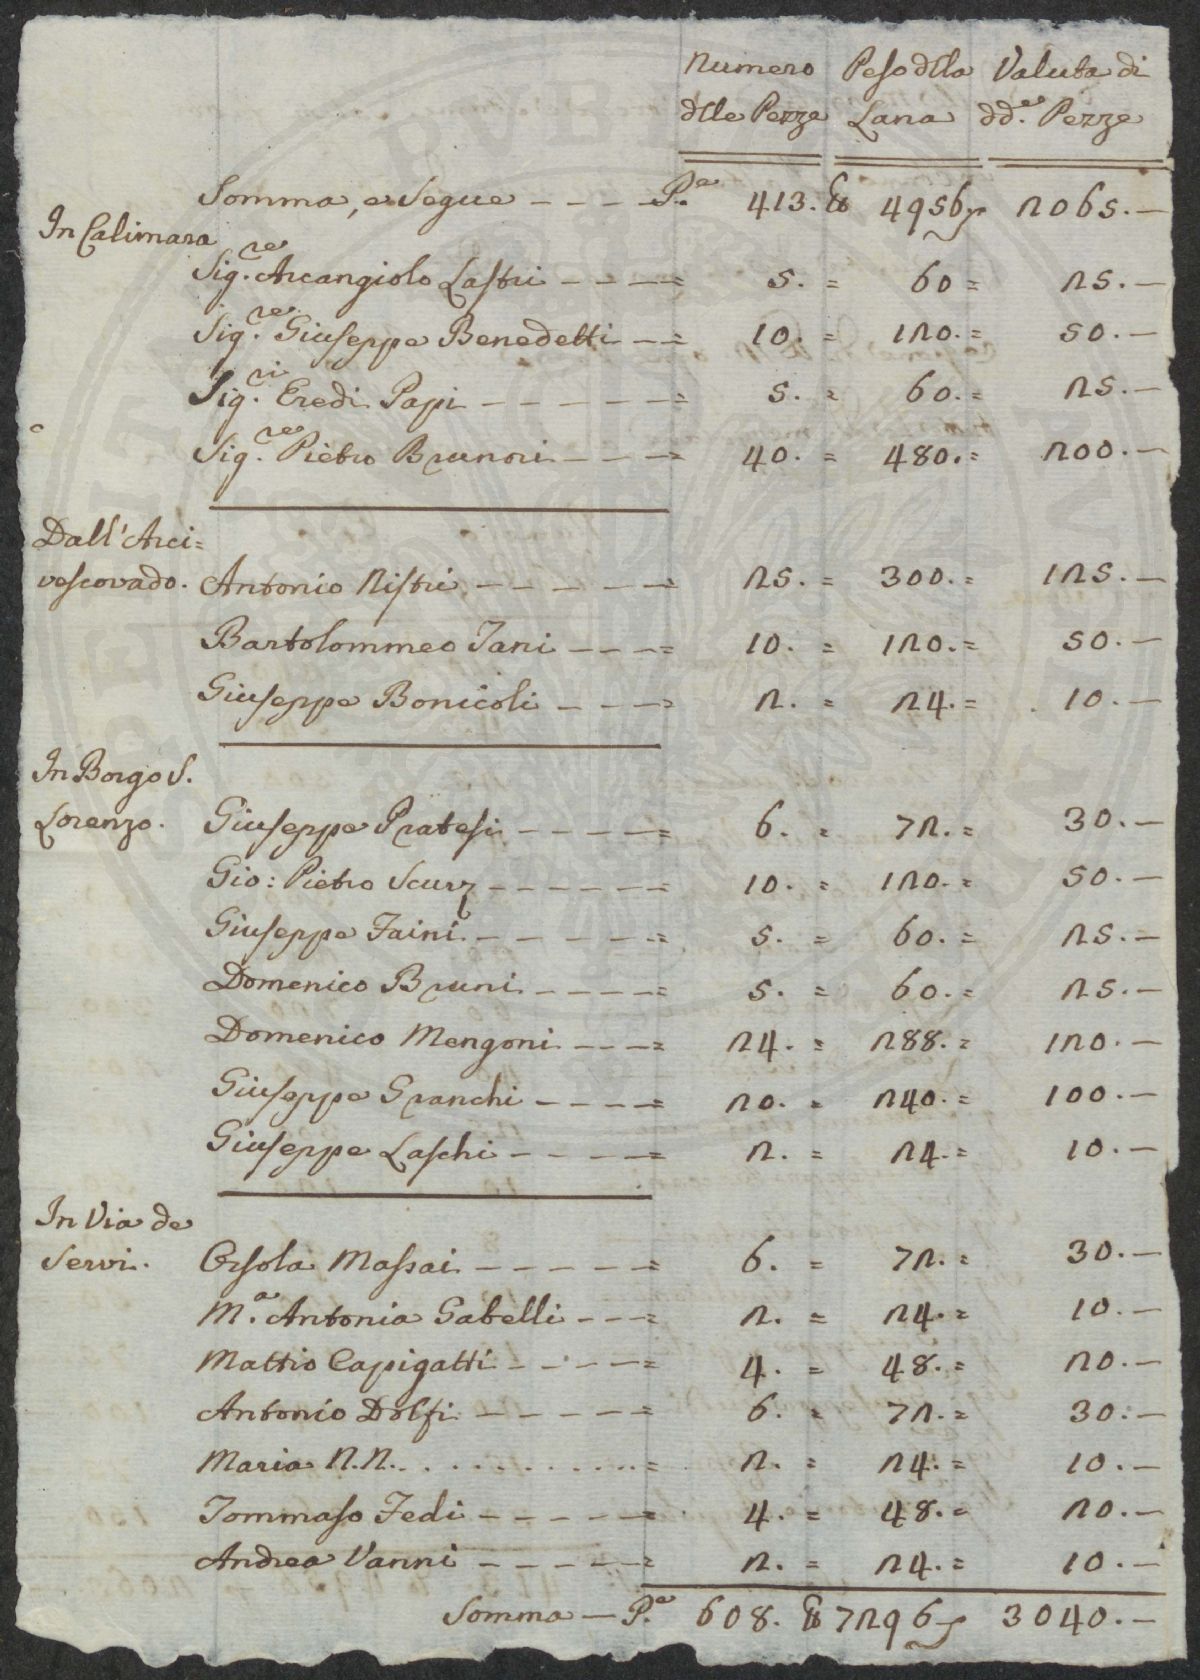 Numero Peso dlla Valuta di
dlle Pezze Lana dd.e Pezze
Somma, e Segue - - - - P.a 413. ℔ 4956 2065. —
In Calimara
Sig.re Arcangiolo Lastri - - - - = 5. = 60 = 25. —
Sig.re Giuseppe Benedetti - - = 10. = 120. = 50. —
Sig.ri Eredi Papi - - - - - - = 5. = 60. = 25. —
Sig.re Pietro Brunori - - - - = 40. = 480. = 200. —
Dall' Arci=
vescovado. Antonio Nistri - - - - - - = 25. = 300. = 125. —
Bartolommeo Tani - - - - = 10. = 120. = 50. —
Giuseppe Bonicoli - - - - = 2. = 24. = 10. —
In Borgo S.
Lorenzo. Giuseppe Pratesi - - - - - = 6. = 72. = 30. —
Gio: Pietro Scurz - - - - - - = 10. = 120. = 50. —
Giuseppe Faini. - - - - - - = 5. = 60. = 25. —
Domenico Bruni - - - - - = 5. = 60. = 25. —
Domenico Mengoni - - - - = 24. = 288. = 120. —
Giuseppe Granchi - - - - - = 20. = 240. = 100. —
Giuseppe Laschi - - - - - = 2. = 24. = 10. —
In Via de
Servi. Orsola Massai - - - - - - = 6. = 72. = 30. —
M.a Antonia Gabelli - - - = 2. = 24. = 10. —
Mattio Capigatti - - - - - = 4. = 48. = 20. —
Antonio Dolfi - - - - - - = 6. = 72. = 30. —
Maria N.N. . . . . . . . . . . = 2. = 24. = 10. —
Tommaso Fedi - - - - - - = 4. = 48. = 20. —
Andrea Vanni - - - - - - = 2. = 24. = 10. —
Somma — P.e 608. ℔ 7296 3040. —